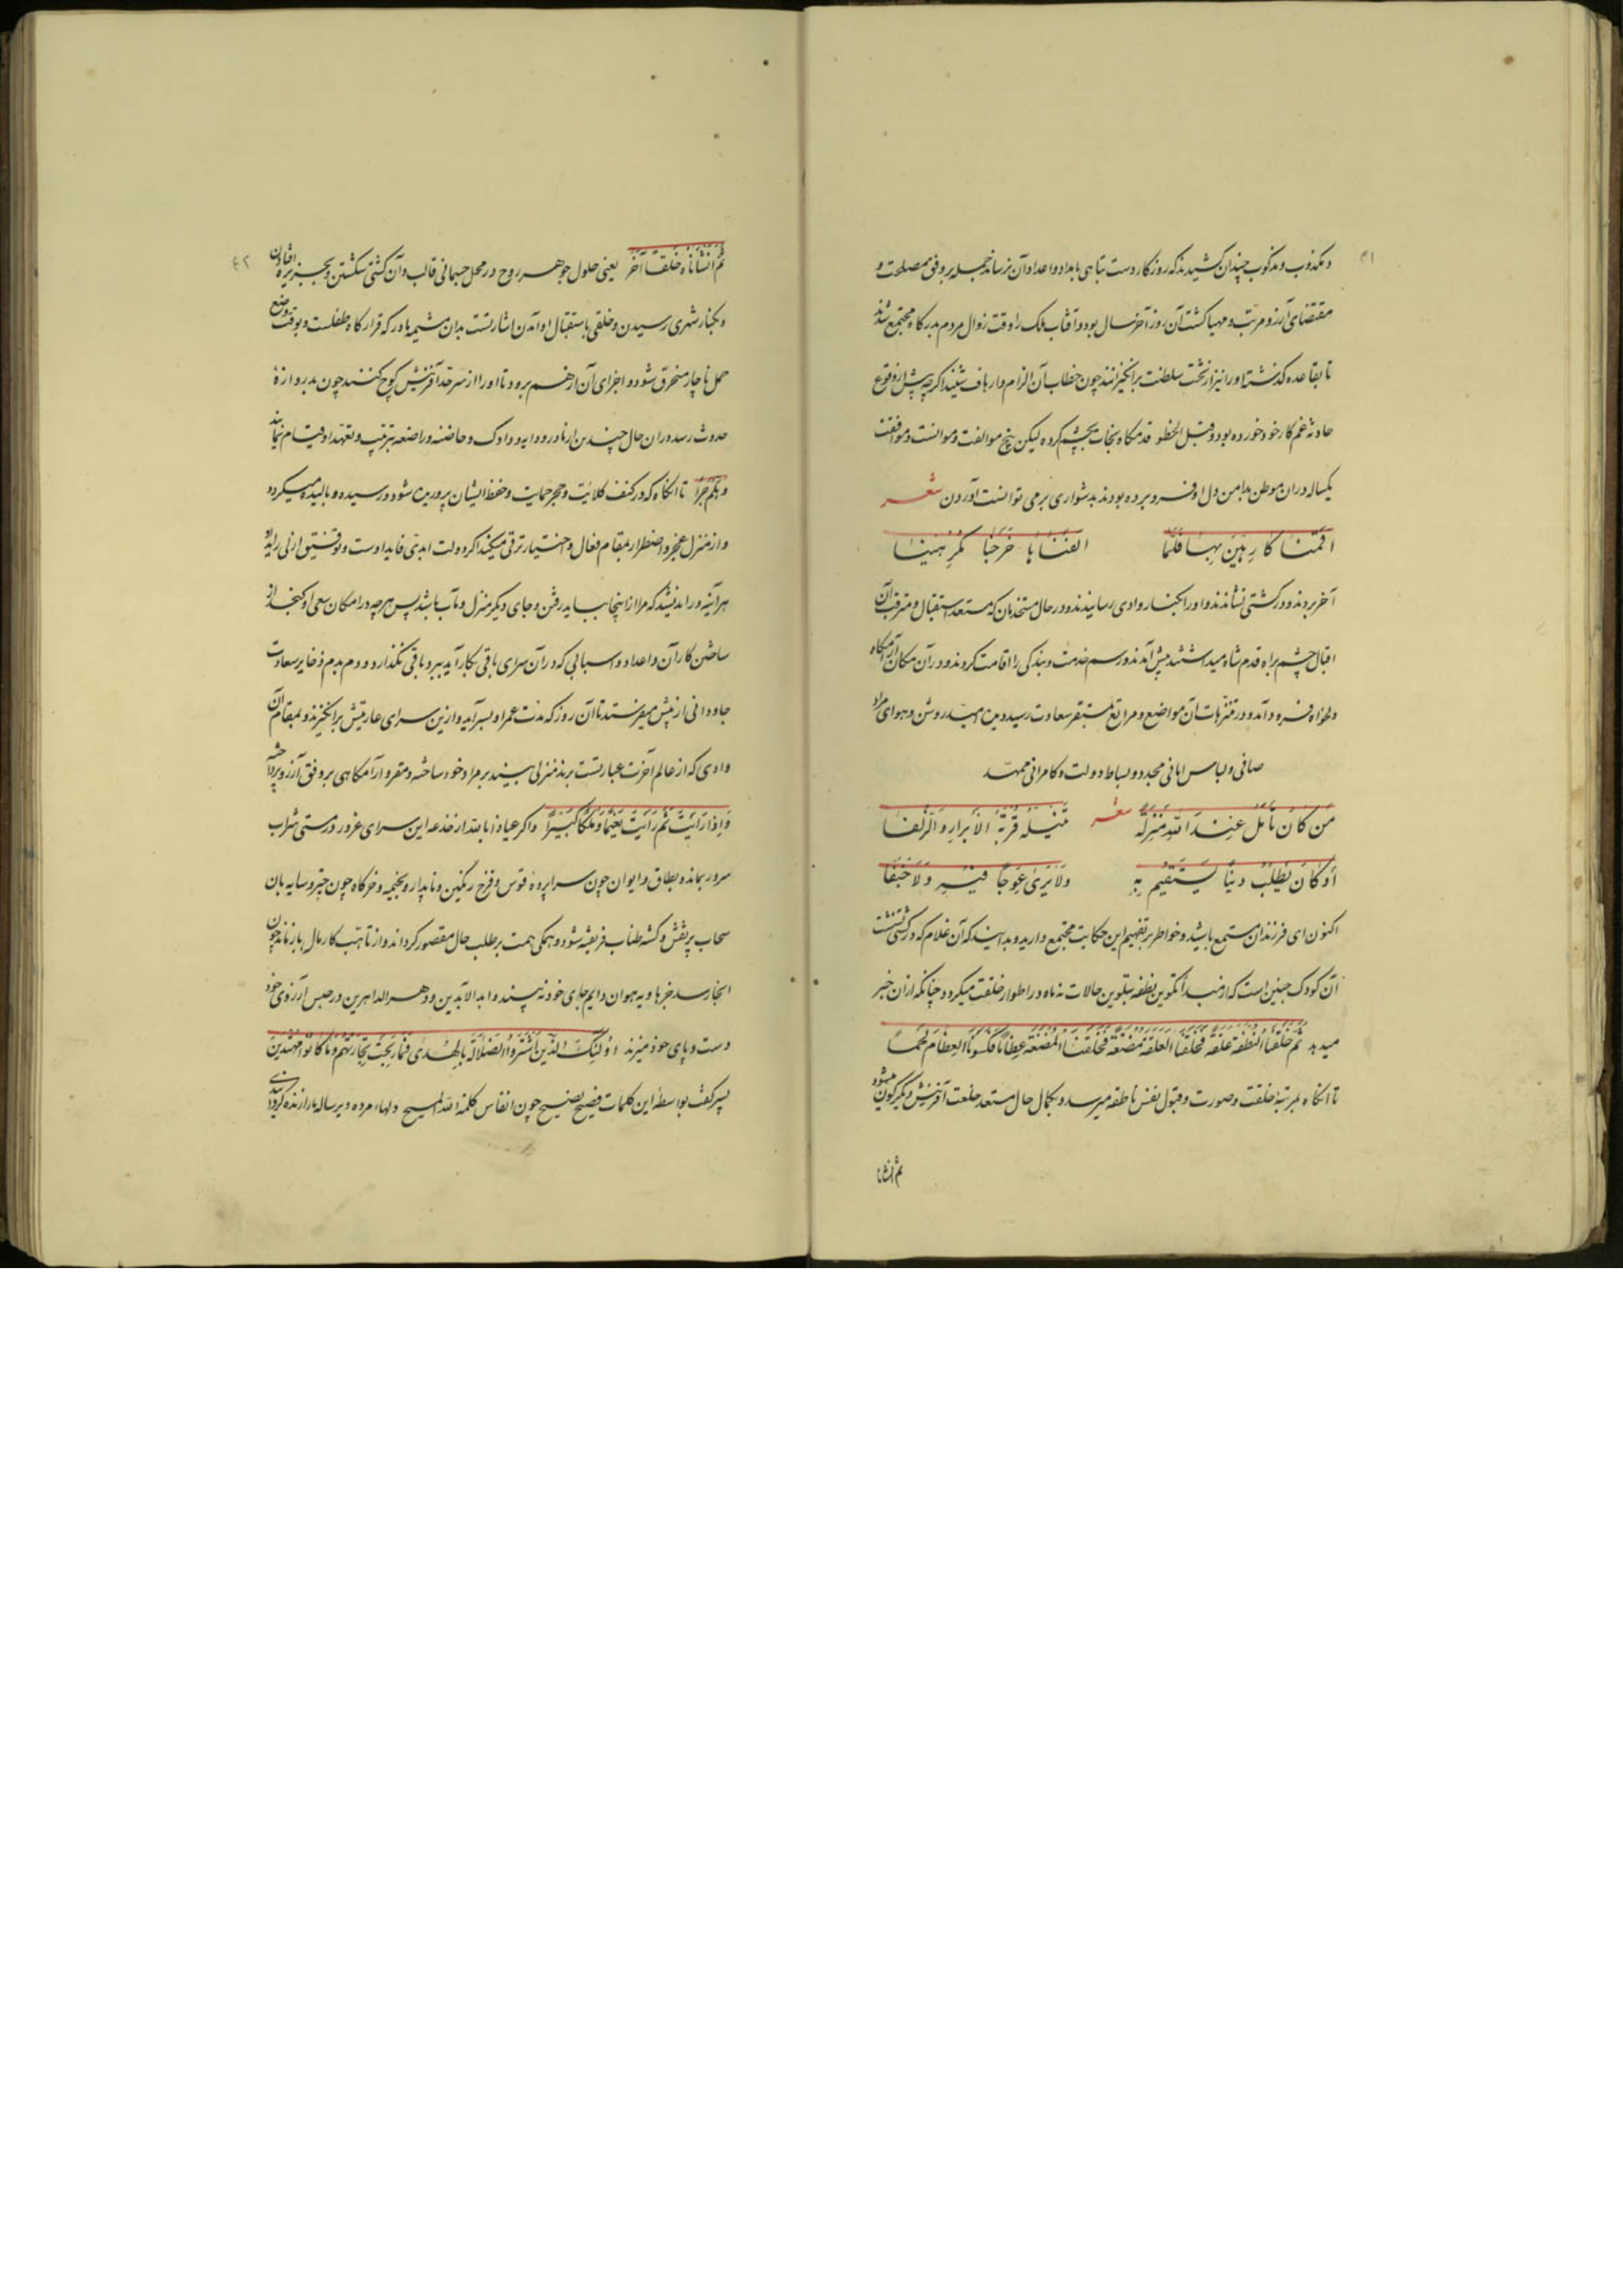 ۴۱
و مکذوب و مذکوب چندان کشیدند که روزگار دست تباهی بامداد و اعداد آن نرساند جمله بر وفق مصلحت و
مقتضای آرزو مرتب و مهیا گشت آن روز آخر سال بود و آفتاب ملک را وقت زوال مردم بدرگاه مجتمع شدند
تا بقاعده گذشته او را نیز از تخت سلطنت برانگیزانند چون خطاب آن الزام و ارهاق شنید اگر چه پیش از وقوع
حادثه غم کار خود خورده بود و قبل الخطو قدمگاه نجات بچشم کرده لیکن بیخ موالفت و موانست و موافقت
یکساله در ان موطن بدامن دل او فرو برده بودند بدشواری بر می توانست آوردن شعر
اقمنا کارهین بها فلما الفناها خرجنا مکرهینا
آخر بردند و در کشتی نشاندند و او را بکنار وادی رسانیدند و در حال مستخدمان که مستعد استقبال و مترقب آن
اقبال چشم براه قدم شاه میداشتند پیش آمدند و رسم خدمت و بندگی را اقامت کردند و در آن مکان آرامگاه
دلخواه فرود آمد و در متنزهات آن مواضع و مراتع بمستقر سعادت رسید دیده امید روشن و هوای مراد
صافی و لباس امانی مجدد و بساط دولت و کامرانی ممهد
شعر
من کان یأمل عند الله منزلة تنیله قربة الابرار و الزلفا
أو کان یطلب دینا یستقیم به ولا یری عوجا فیه ولا جنفا
اکنون ای فرزندان مستمع باشید و خواطر بر تفهیم این حکایت مجتمع دارید و بدانید که آن غلام که در کشتی نشست
آن کودک جنین است که از مبدأ تکوین نطفه بتلوین حالات نه ماه در اطوار خلقت میگردد چنانکه ازان خبر
میدهد ثم خلقنا النطفة علقة فخلقنا العلقة مضغة فخلقنا المضغة عظاما فکسونا العظام لحما
تا آنگاه بمرتبه خلقت و صورت و قبول نفس ناطقه میرسد و بکمال حال مستعد خلعت آفرینش دیگرگون میشود
ثم انشانا
۴۲
ثم انشأناه خلقا آخر یعنی حلول جوهر روح در محل جسمانی قالب و آن کشتی شکستن و بجزیره افتادن
و بکنار شهری رسیدن و خلقی باستقبال او آمدن اشارتست بدان مشیمه مادر که قرارگاه طفلست و بوقت وضع
حمل ناچار منخرق شود و اجزای آن از هم برود تا او را از سرحد آفرینش کوچ کنند چون بدروازه
حدوث رسد دران حال چندین از مادر و دایه و دادک و حاضنه و راضعه بترتیب و تعهد او قیام نمایند
و هلم جرا تا آنگاه که در کنف کلائت و حجر حمایت و حفظ ایشان پرورده شود و رسیده و بالیده میگردد
و از منزل عجز و اضطرار بمقام فعال و اختیار ترقی میکند اگر دولت ابدی قاید اوست و توفیق ازلی راید او
هرآینه دراندیشد که مرا از اینجا بباید رفتن و جای دیگر منزل و مآب باشد پس هر چه در امکان سعی او گنجد از
ساختن کار آن و اعداد و اسبابی که در آن سرای باقی بکار آید ببرد باقی نگذارد و دم بدم ذخایر سعادت
جاودانی از پیش میفرستد تا آن روز که مدت عمر او بسر آید و ازین سرای عاریتش برانگیزند و بمقام آن
وادی که از عالم آخرت عبارتست برند منزلی بیند بر مراد خود ساخته و مقر و آرامگاهی بر وفق آرزو پرداخته
و اذا رأیت ثم رأیت نعیما و ملکا کبیرا و اگر عیاذا بالله از خدعه این سرای غرور در مستی شراب
سرور بماند و بطاق و ایوان چون سراپرده قوس و قزح رنگین و ناپدار و بخیمه و خرگاه چون چتر و سایه بان
سحاب پر نقش و گسسته طناب فریفته شود و همگی همت بر طلب حال مقصور گرداند و از تاهب کار مآل باز ماند چون
انجا رسد جز هاویه هوان دایم جای خود نه بیند و ابد الآبدین و دهر الداهرین در حبس آرزوی خود
دست و پای خود میزند اولئک الذین اشتروا الضلالة بالهدی فما ربحت تجارتهم و ما کانوا مهتدین
پسر گفت بواسطه این کلمات فصیح نصیح چون انفاس کلمة الله المسیح دلهاء مرده دیرساله ما را زنده گردانیدی